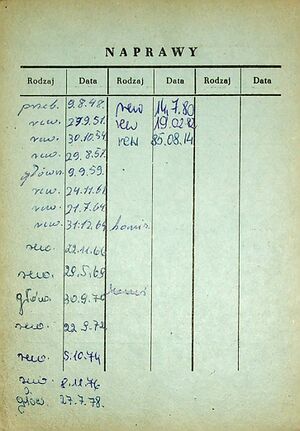 NAPRAWY
Rodzaj Data Rodzaj Data Rodzaj Data
przeb. 9.8.48. rew 14.7.80
rew. 27.9.51. rew 19.02.82
rew. 30.10.54 rew 85.08.14
rew. 29.8.57.
główn. 9.9.59.
rew. 24.11.61
rew. 21.7.64
rew. 31.12.64
rew. 22.11.66
rew. 29.5.69
główn. 30.9.70
rew. 22.9.72
rew. 5.10.74
rew. 2.11.76
główn. 27.7.78.